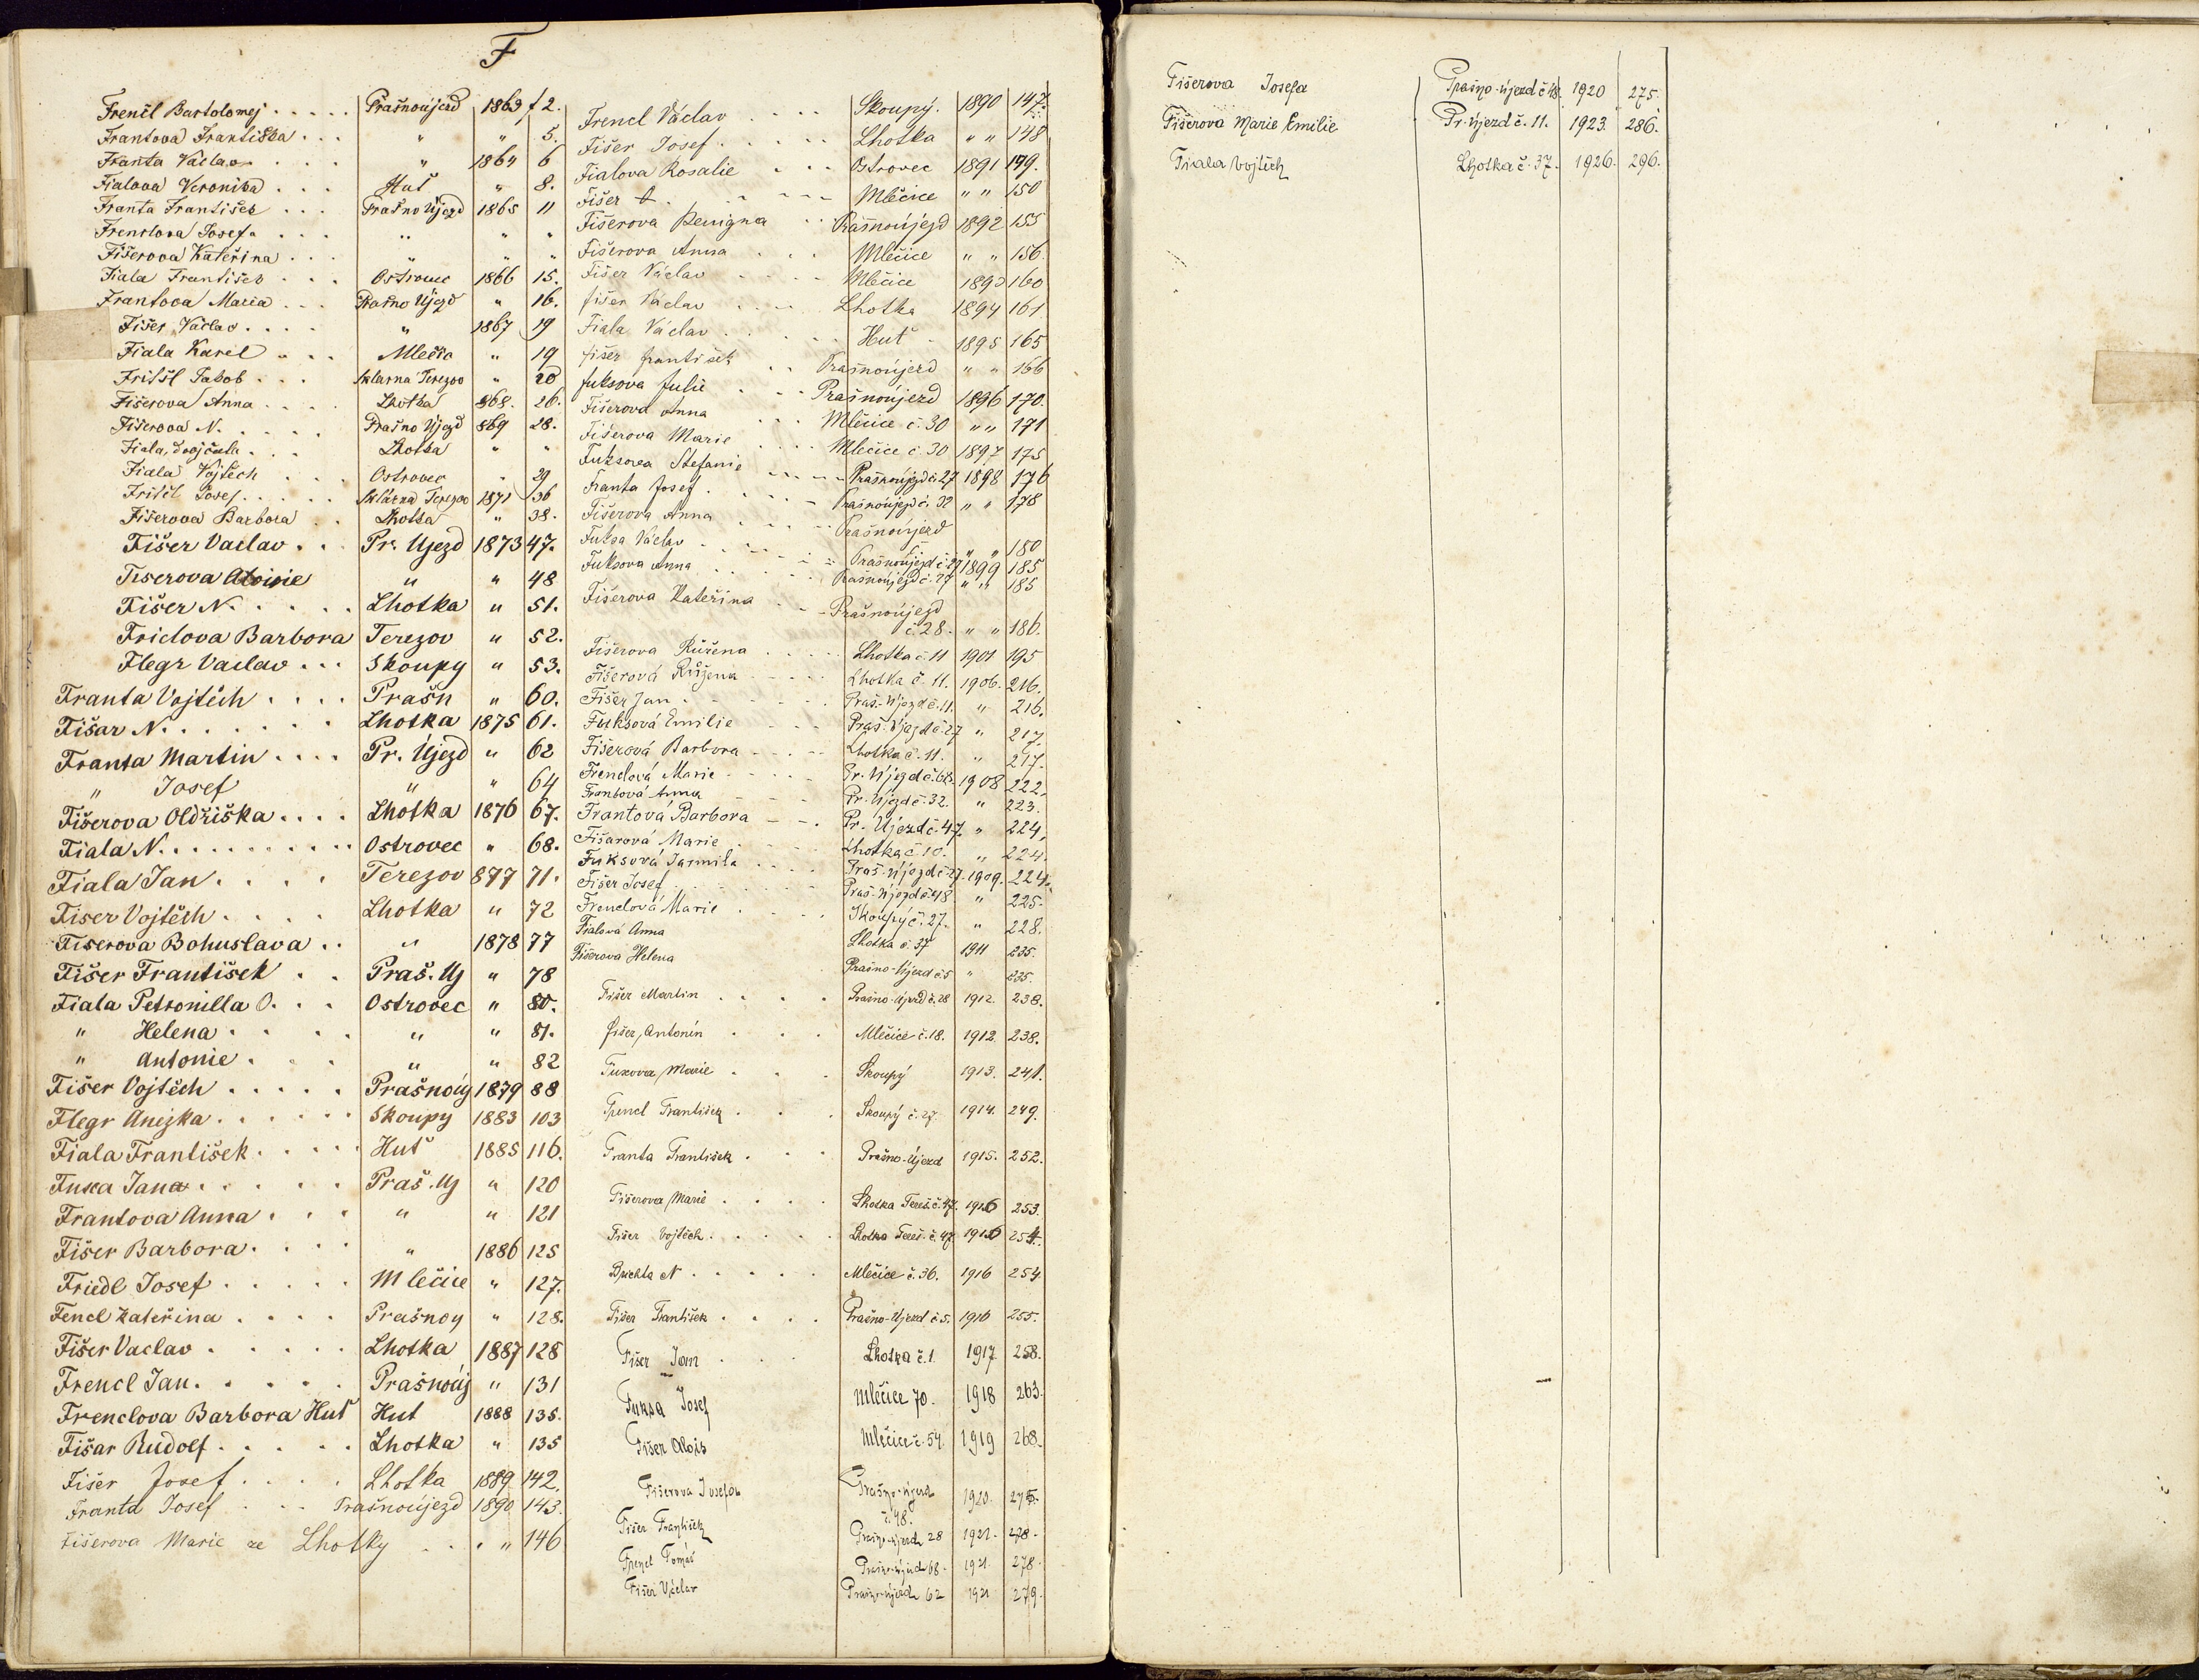 F
Frencl Bartolomej . . . . . Prašnoújezd 1863 f 2.
Frantova Františka . . . " " 5.
Franta Václav . . . . " 1864 6
Fialova Veronika . . . Huť " 8.
Franta František . . . Prašno Újezd 1865 11
Frenclova Josefa . . . " " "
Fišerova Kateřina . . . " " "
Fiala František . . . Ostrovec 1866 15.
Frantova Maria . . . Prašno Újezd " 16.
Fišer Václav . . . . " 1867 19
Fiala Karel . . . Mlečic " 19
Frišl Jakob . . . Sklarna Terezov " 20
Fišerova Anna . . . . Lhotka 868. 26.
Fišerova N. . . . . Prašno Újezd 869 28.
Fiala, dvojčata . . . Lhotka " "
Fiala Vojtěch . . . Ostrovec " 29
Frišl Josef . . . . . Sklárna Terezov 1871 36
Fišerova Barbora . . Lhotka " 38.
Fišer Vaclav . . . Pr. Ujezd 1873 47.
Fiserova Aloisie " " 48
Fišer N. . . . . . Lhotka " 51.
Friclova Barbora Terezov " 52.
Flegr Vaclav . . . Skoupy " 53.
Franta Vojtěch . . . . Prašn " 60.
Fišar N. . . . . . . Lhotka 1875 61.
Franta Martin . . . . Pr. Újezd " 62
" Josef " " 64
Fišerova Oldřiška . . . . Lhotka 1876 67.
Fiala N. . . . . . . . . . Ostrovec " 68.
Fiala Jan . . . . Terezov 877 71.
Fiser Vojtěch . . . . Lhotka " 72
Fiserova Bohuslava . . " 1878 77
Fišer František . . Praš. Uj " 78
Fiala Petronilla O. . . Ostrovec " 80.
" Helena . . . . " " 81.
" Antonie . . . " " 82
Fišer Vojtěch . . . . . Prašnoúj 1879 88
Flegr Anežka . . . . . . Skoupy 1883 103
Fiala František . . . . . Huť 1885 116.
Fuxa Jana . . . . . Praš. Uj " 120
Frantova Anna . . . . " " 121
Fišer Barbora . . . . " 1886 125
Friedl Josef . . . . . Mlečice " 127.
Fencl Kateřina . . . . Prašnoú " 128.
Fišer Vaclav . . . . . Lhotka 1887 128
Frencl Jan . . . . . Prašnoúj " 131
Frenclova Barbora Huť Hut 1888 135.
Fišar Rudolf . . . . . Lhotka " 135
Fišer Josef . . . . Lhotka 1889 142.
Franta Josef . . . Prašnoújezd 1890 143.
Fišerova Marie ze Lhotky . . . " 146
Frencl Václav . . . . Skoupý. 1890 147.
Fišer Josef . . . . . Lhotka " " 148
Fialova Rosalie . . . Ostrovec 1891 149.
Fišer . . . . Mlečice " " 150
Fišerova Benigna . . Prašnoújezd 1892 155
Fišerova Anna . . . Mlečice " " 156.
Fišer Václav . . . . Mlečice 1893 160
Fišer Václav . . . . Lhotka 1894 161
Fiala Václav . . . . Huť 1895 165
Fišer František . . Prašnoújezd " " 166
Fuksova Julie . . . Prašnoújezd 1896 170.
Fišerova Anna . . . Mlečice č. 30 " " 171
Fišerova Marie . . . . Mlečice č. 30 1897 175
Fuksova Stefanie . . . . Prašnoújezd č. 27 1898 176
Franta Josef . . . . . Prašnoújezd č. 32 " " 178
Fišerova Anna . . . . Prašnoújezd
Fuksa Václav . . . . " " 180
Fuksova Anna . . . . Prašnoújezd č. 27 1899 185
Prašnoújezd č. 27 " " 185
Fišerova Kateřina . . . Prašnoújezd
č. 28. " " 186.
Fišerova Růžena . . . . . Lhotka č. 11 1901 195
Fišerová Růžena . . . . . Lhotka č. 11. 1906. 216.
Fišer Jan . . . . . . Praš. Újezd č. 11. " 216.
Fuksová Emilie . . . Praš. Újezd č. 27 " 217.
Fišerová Barbora . . . . Lhotka č. 11. " 217.
Frenclová Marie . . . . . Pr. Újezd č. 68. 1908 222.
Frantová Anna . . . Pr. Újezd č. 32. " 223.
Frantová Barbora . . . Pr. Újezd č. 47. " 224.
Fišarová Marie . . . . Lhotka č. 10. " 224.
Fuksová Jarmila . . . Praš. Újezd č. 27. 1909. 224.
Fišer Josef . . . . . . Praš. Újezd č. 48. " 225.
Frenclová Marie . . . . Skoupý č. 27. " 228.
Fialová Anna Lhotka č. 37 1911 235.
Fišerova Helena Prašno-Újezd č. 5 " 235.
Fišer Martin . . . . Prašno-Újezd č. 28 1912. 238.
Fišer Antonín . . . Mlečice č. 18. 1912. 238.
Fuxova Marie . . . . Skoupý 1913. 241.
Frencl František . . . Skoupý č. 27. 1914. 249.
Franta František . . . Prašno-Újezd 1915. 252.
Fišerova Marie . . . . Lhotka Tereš. č. 47. 1916 253.
Fišer Vojtěch . . . . . Lhotka Tereš. č. 47. 1916 254.
Brichta N . . . . . Mlečice č. 36. 1916 254
Fišer František . . . . Prašno-Újezd č. 5. 1916 255.
Fišer Jan . . . Lhotka č. 1 1917 258.
Fuksa Josef Mlečice 70. 1918 263.
Fišer Alois Mlečice č. 54. 1919 268.
Fišerova Josefa Prašno-Újezd 1920. 275.
č. 48.
Fišer František Prašno-Újezd 28 1921. 278.
Frencl Tomáš Prašno-újezd 68. 1921. 278.
Fišer Václav Prašno-újezd 62 1921 279.
Fišerova Josefa Prašno-újezd č. 48. 1920 275.
Fišerova Marie Emilie Pr. Újezd č. 11. 1923. 286.
Fiala Vojtěch Lhotka č. 37. 1926. 296.